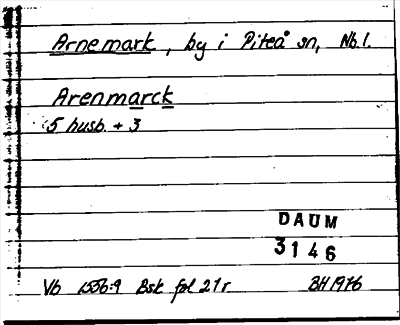 Arnemark, by i Piteå sn, Nb.l.
Arenmarck
5 husb. + 3
DAUM
3146
Vb 1556:9 Bsk fol 21r. BH 1976